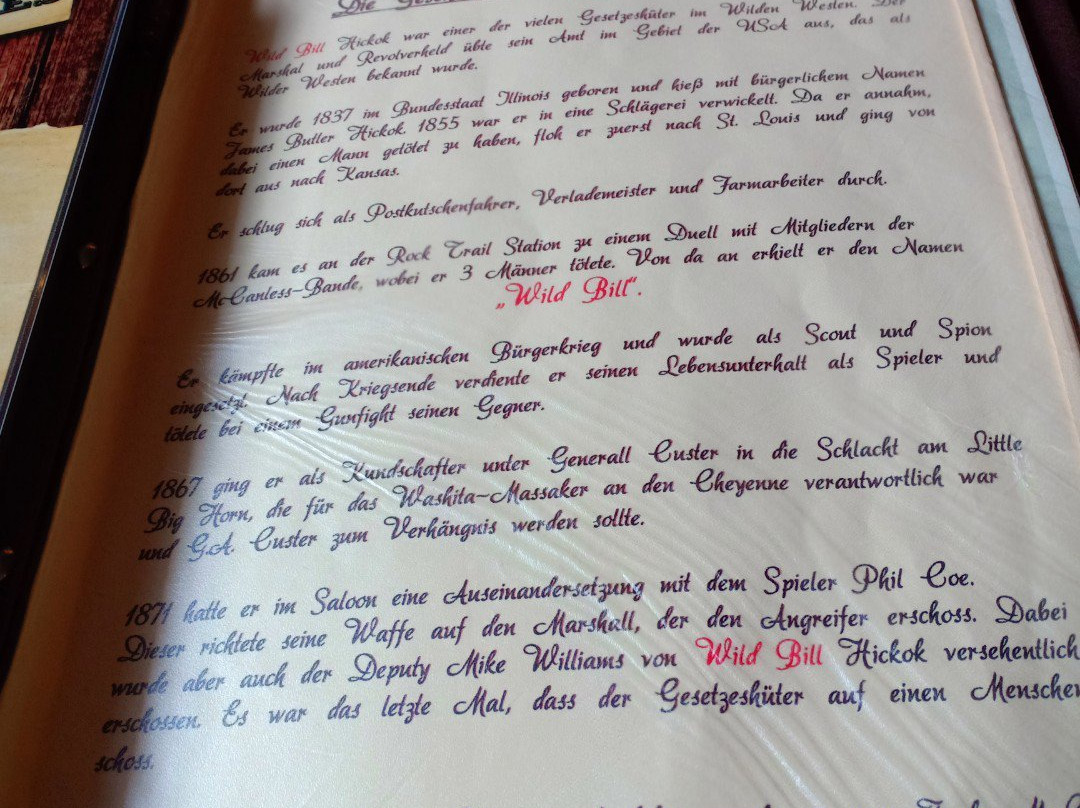 Die
Wild Bill Hickok war einer der vielen Gesetzeshüter im Wilden Westen. Der
Marshal und Revolverheld übte sein Amt im Gebiet der USA aus, das als
Wilder Westen bekannt wurde.
Er wurde 1837 im Bundesstaat Illinois geboren und hieß mit bürgerlichem Namen
James Butler Hickok. 1855 war er in eine Schlägerei verwickelt. Da er annahm,
dabei einen Mann getötet zu haben, floh er zuerst nach St. Louis und ging von
dort aus nach Kansas.
Er schlug sich als Postkutschenfahrer, Verlademeister und Farmarbeiter durch.
1861 kam es an der Rock Trail Station zu einem Duell mit Mitgliedern der
McCanless-Bande, wobei er 3 Männer tötete. Von da an erhielt er den Namen
„Wild Bill“.
Er kämpfte im amerikanischen Bürgerkrieg und wurde als Scout und Spion
eingesetzt. Nach Kriegsende verdiente er seinen Lebensunterhalt als Spieler und
tötete bei einem Gunfight seinen Gegner.
1867 ging er als Kundschafter unter Generall Custer in die Schlacht am Little
Big Horn, die für das Washita-Massaker an den Cheyenne verantwortlich war
und G.A. Custer zum Verhängnis werden sollte.
1871 hatte er im Saloon eine Auseinandersetzung mit dem Spieler Phil Coe.
Dieser richtete seine Waffe auf den Marshall, der den Angreifer erschoss. Dabei
wurde aber auch der Deputy Mike Williams von Wild Bill Hickok versehentlich
erschossen. Es war das letzte Mal, dass der Gesetzeshüter auf einen Menschen
schoss.